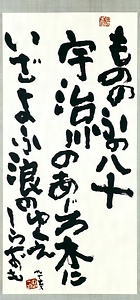 ものゝふの八十
宇治川のあじろ木に
いざよふ浪のゆくへ
しらずも